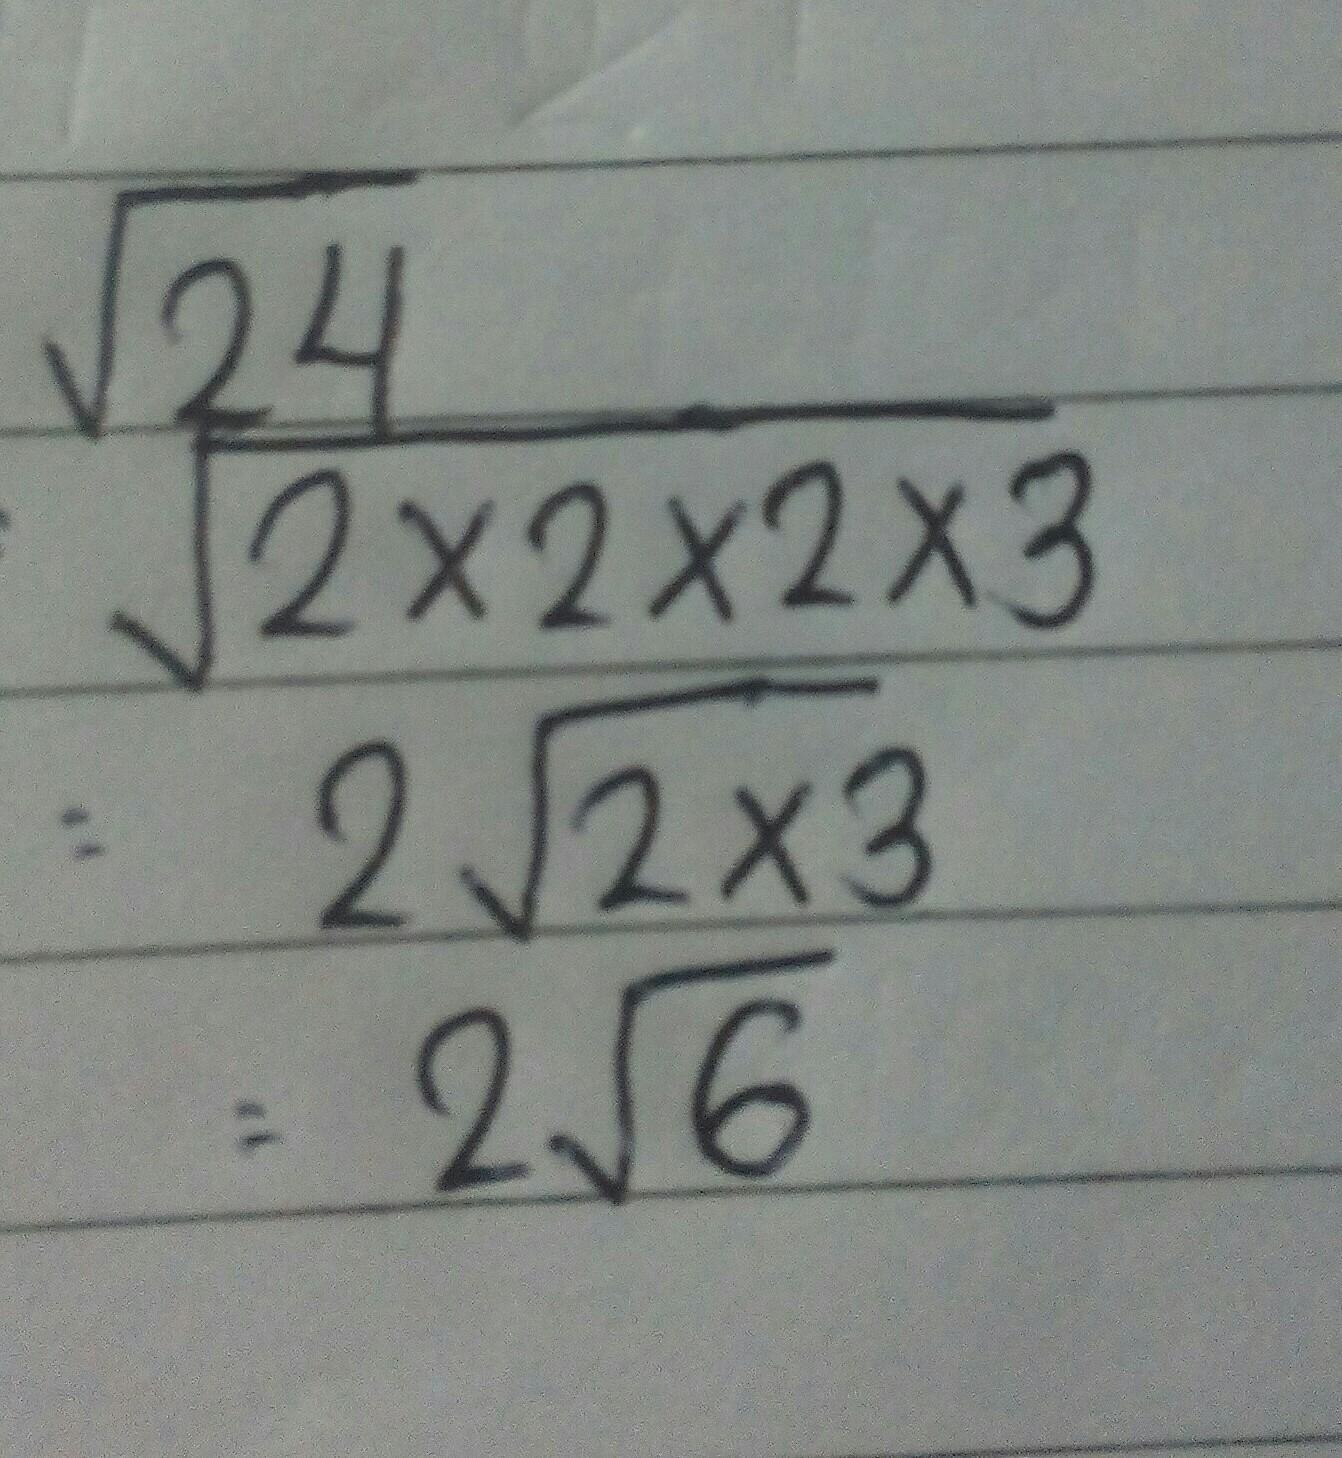 √24
= √2×2×2×3
= 2√2×3
= 2√6